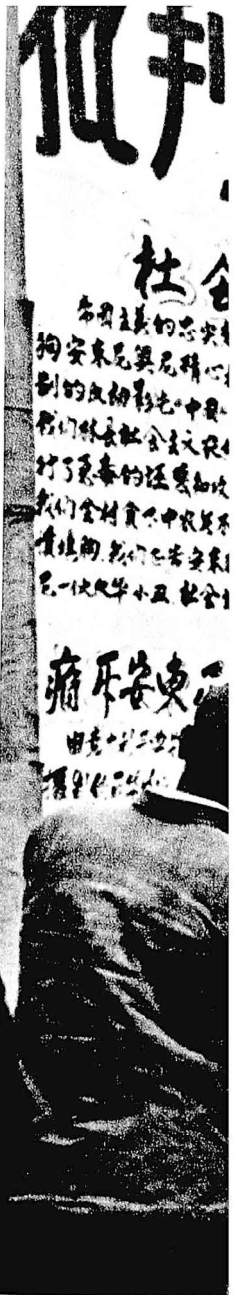 判
社会
帝国主义的忠实
狗安东尼奥尼精心
制的反动影片《中国
我们林县社会主义农
行了恶毒的诬蔑和攻
我们全村贫下中农无不
愤填胸，我们正告安东
尼一伙反华小丑，社会
痛斥安東
由意大利
摄影